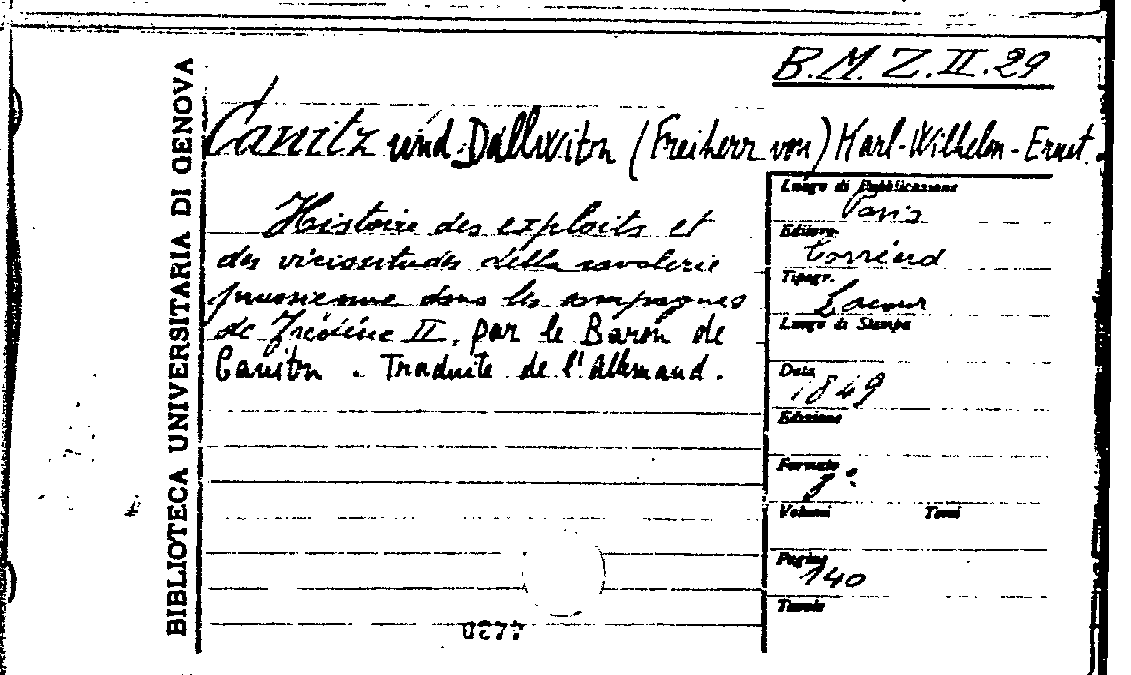 B.M.Z.II.29
BIBLIOTECA UNIVERSITARIA DI GENOVA
Canitz und Dallwitz (Freiherr von) Karl-Wilhelm-Ernst.
Histoire des exploits et
des vicissitudes della cavalerie
prussienne dans les campagnes
de Frédéric II, par le Baron de
Canitz. Traduite de l'Allemand.
Luogo di Pubblicazione
Paris
Editore
Corréard
Tipogr.
Lacour
Luogo di Stampa
Data
1849
Edizione
Formato
8°
Volumi Tomi
Pagine
140
Tavole